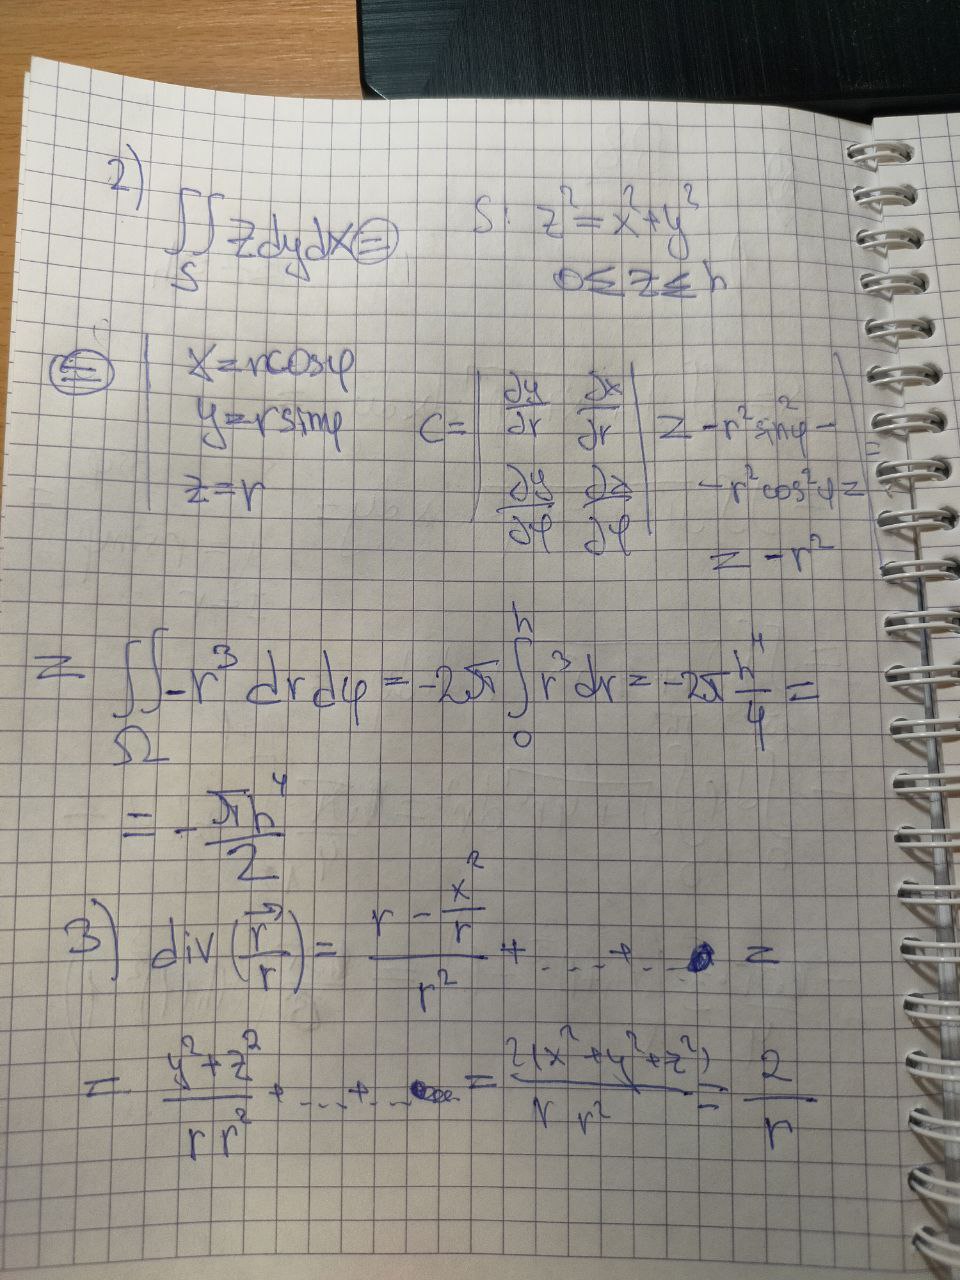 2)
∬_S z dy dx ⊜ S: z² = x² + y²
0 ≤ z ≤ h
⊜ | x = r cos φ
y = r sin φ
z = r
C = | ∂y/∂r ∂x/∂r |
| ∂y/∂φ ∂x/∂φ |
= -r² sin² φ -
- r² cos² φ =
= -r² | =
= ∬_Ω -r³ dr dφ = -2π ∫_0^h r³ dr = -2π h⁴/4 =
= - πh⁴/2
3) div (r⃗/r) = (r - x²/r)/r² + ... + ... =
= (y² + z²)/(r r²) + ... + ... = 2(x² + y² + z²)/(r r²) = 2/r